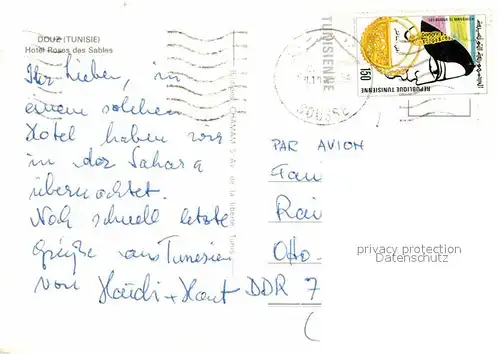 DOUZ (TUNISIE)
Hotel Roses des Sables
Ihr Lieben, in
einem solchen
Hotel haben wir
in der Sahara
übernachtet.
Noch schnell letzte
Grüße aus Tunesien
von Haidi + Horst
TUNISIENNE
SOUSSE
150
REPUBLIQUE TUNISIENNE
PAR AVION
Fam
Rai
Otto
DDR 7
privacy protection
Datenschutz